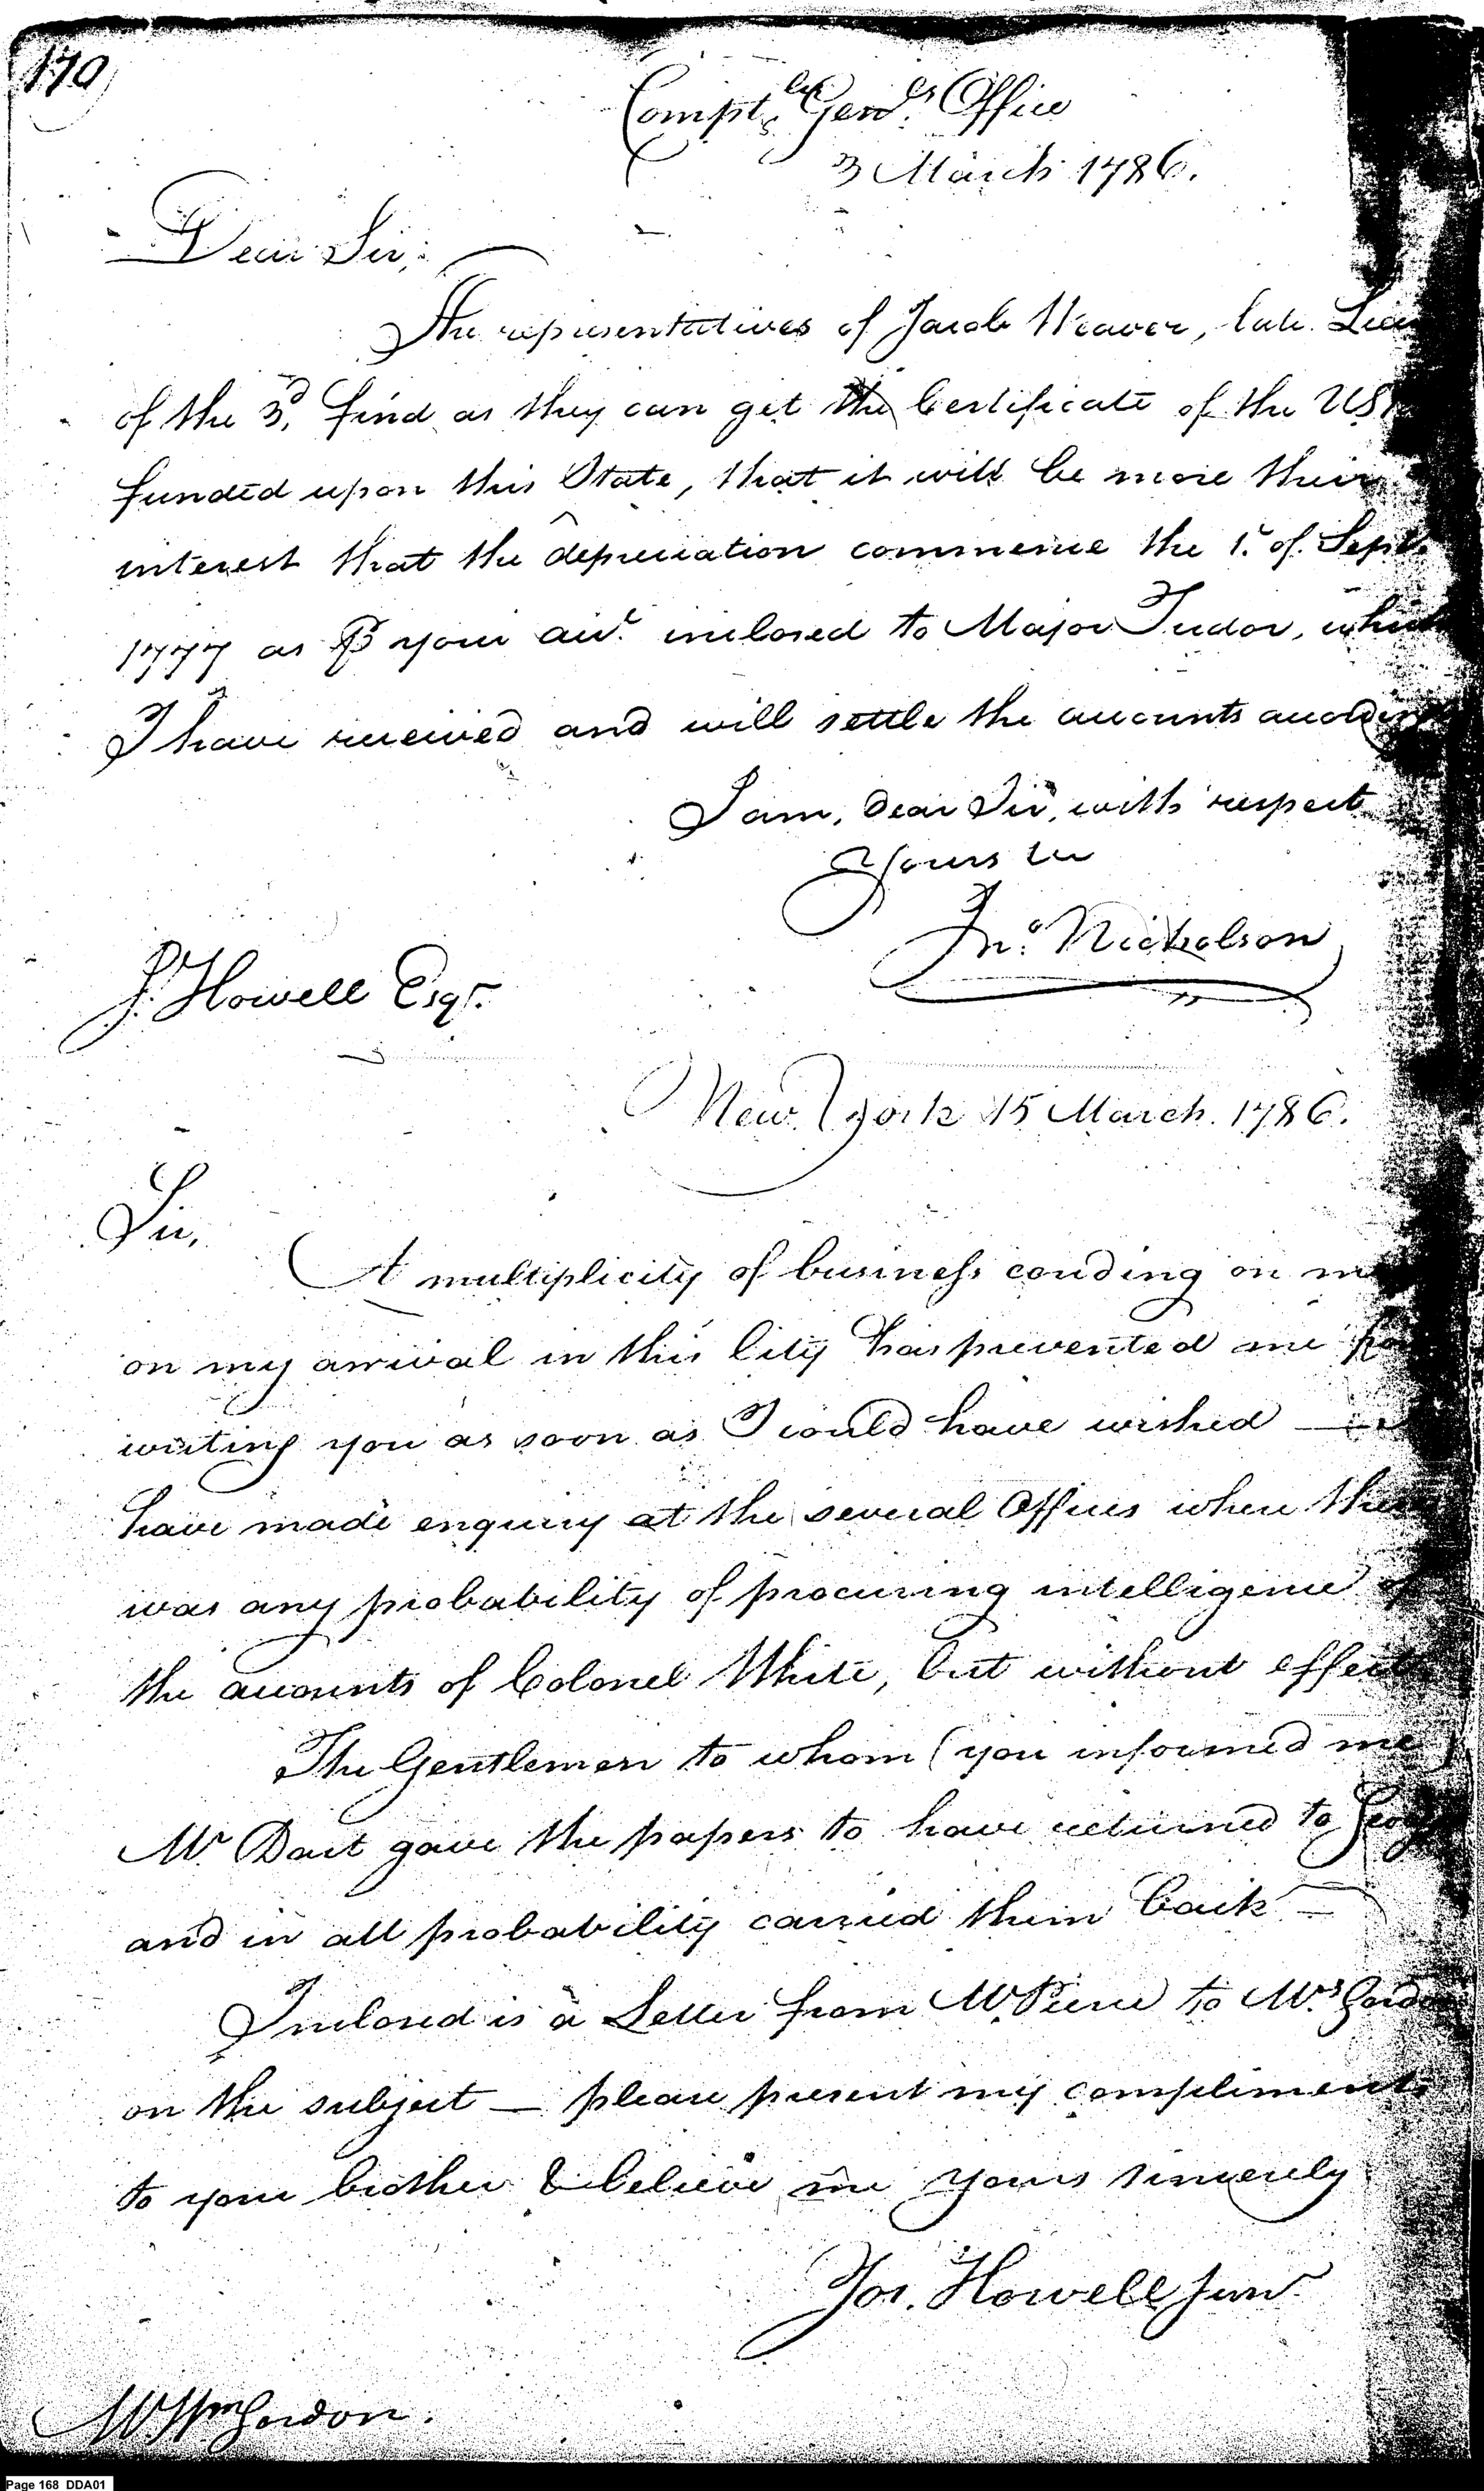 170
Compt.ler Gen.ls Office
3 March 1786.
Dear Sir,
The representatives of Jacob Weaver, late
of the 3.d find as they can get the Certificate of the US
funded upon this State, that it will be more their
interest that the depreciation commence the 1. of Sept.
1777 as ⅌ your acc.t inclosed to Major Tudor, which
I have received and will settle the accounts
I am, dear Sir, with respect
Yours &c
Jn.o Nicholson
J. Howell Esqr.
New York 15 March. 1786.
Sir,
A multiplicity of business crouding on me
on my arrival in this City has prevented me
writing you as soon as I could have wished —
have made enquiry at the several Offices where there
was any probability of procuring intelligence of
the accounts of Colonel White, but without effect
The Gentlemen to whom (you informed me)
Mr. Dart gave the papers to have returned to
and in all probability carried them back —
Inclosed is a Letter from Mr. Pierce to Mrs. Gordon
on the subject — please present my compliments
to your brother & believe me yours sincerely
Jos. Howell Junr.
Mr. Wm Gordon.
Page 168 DDA01